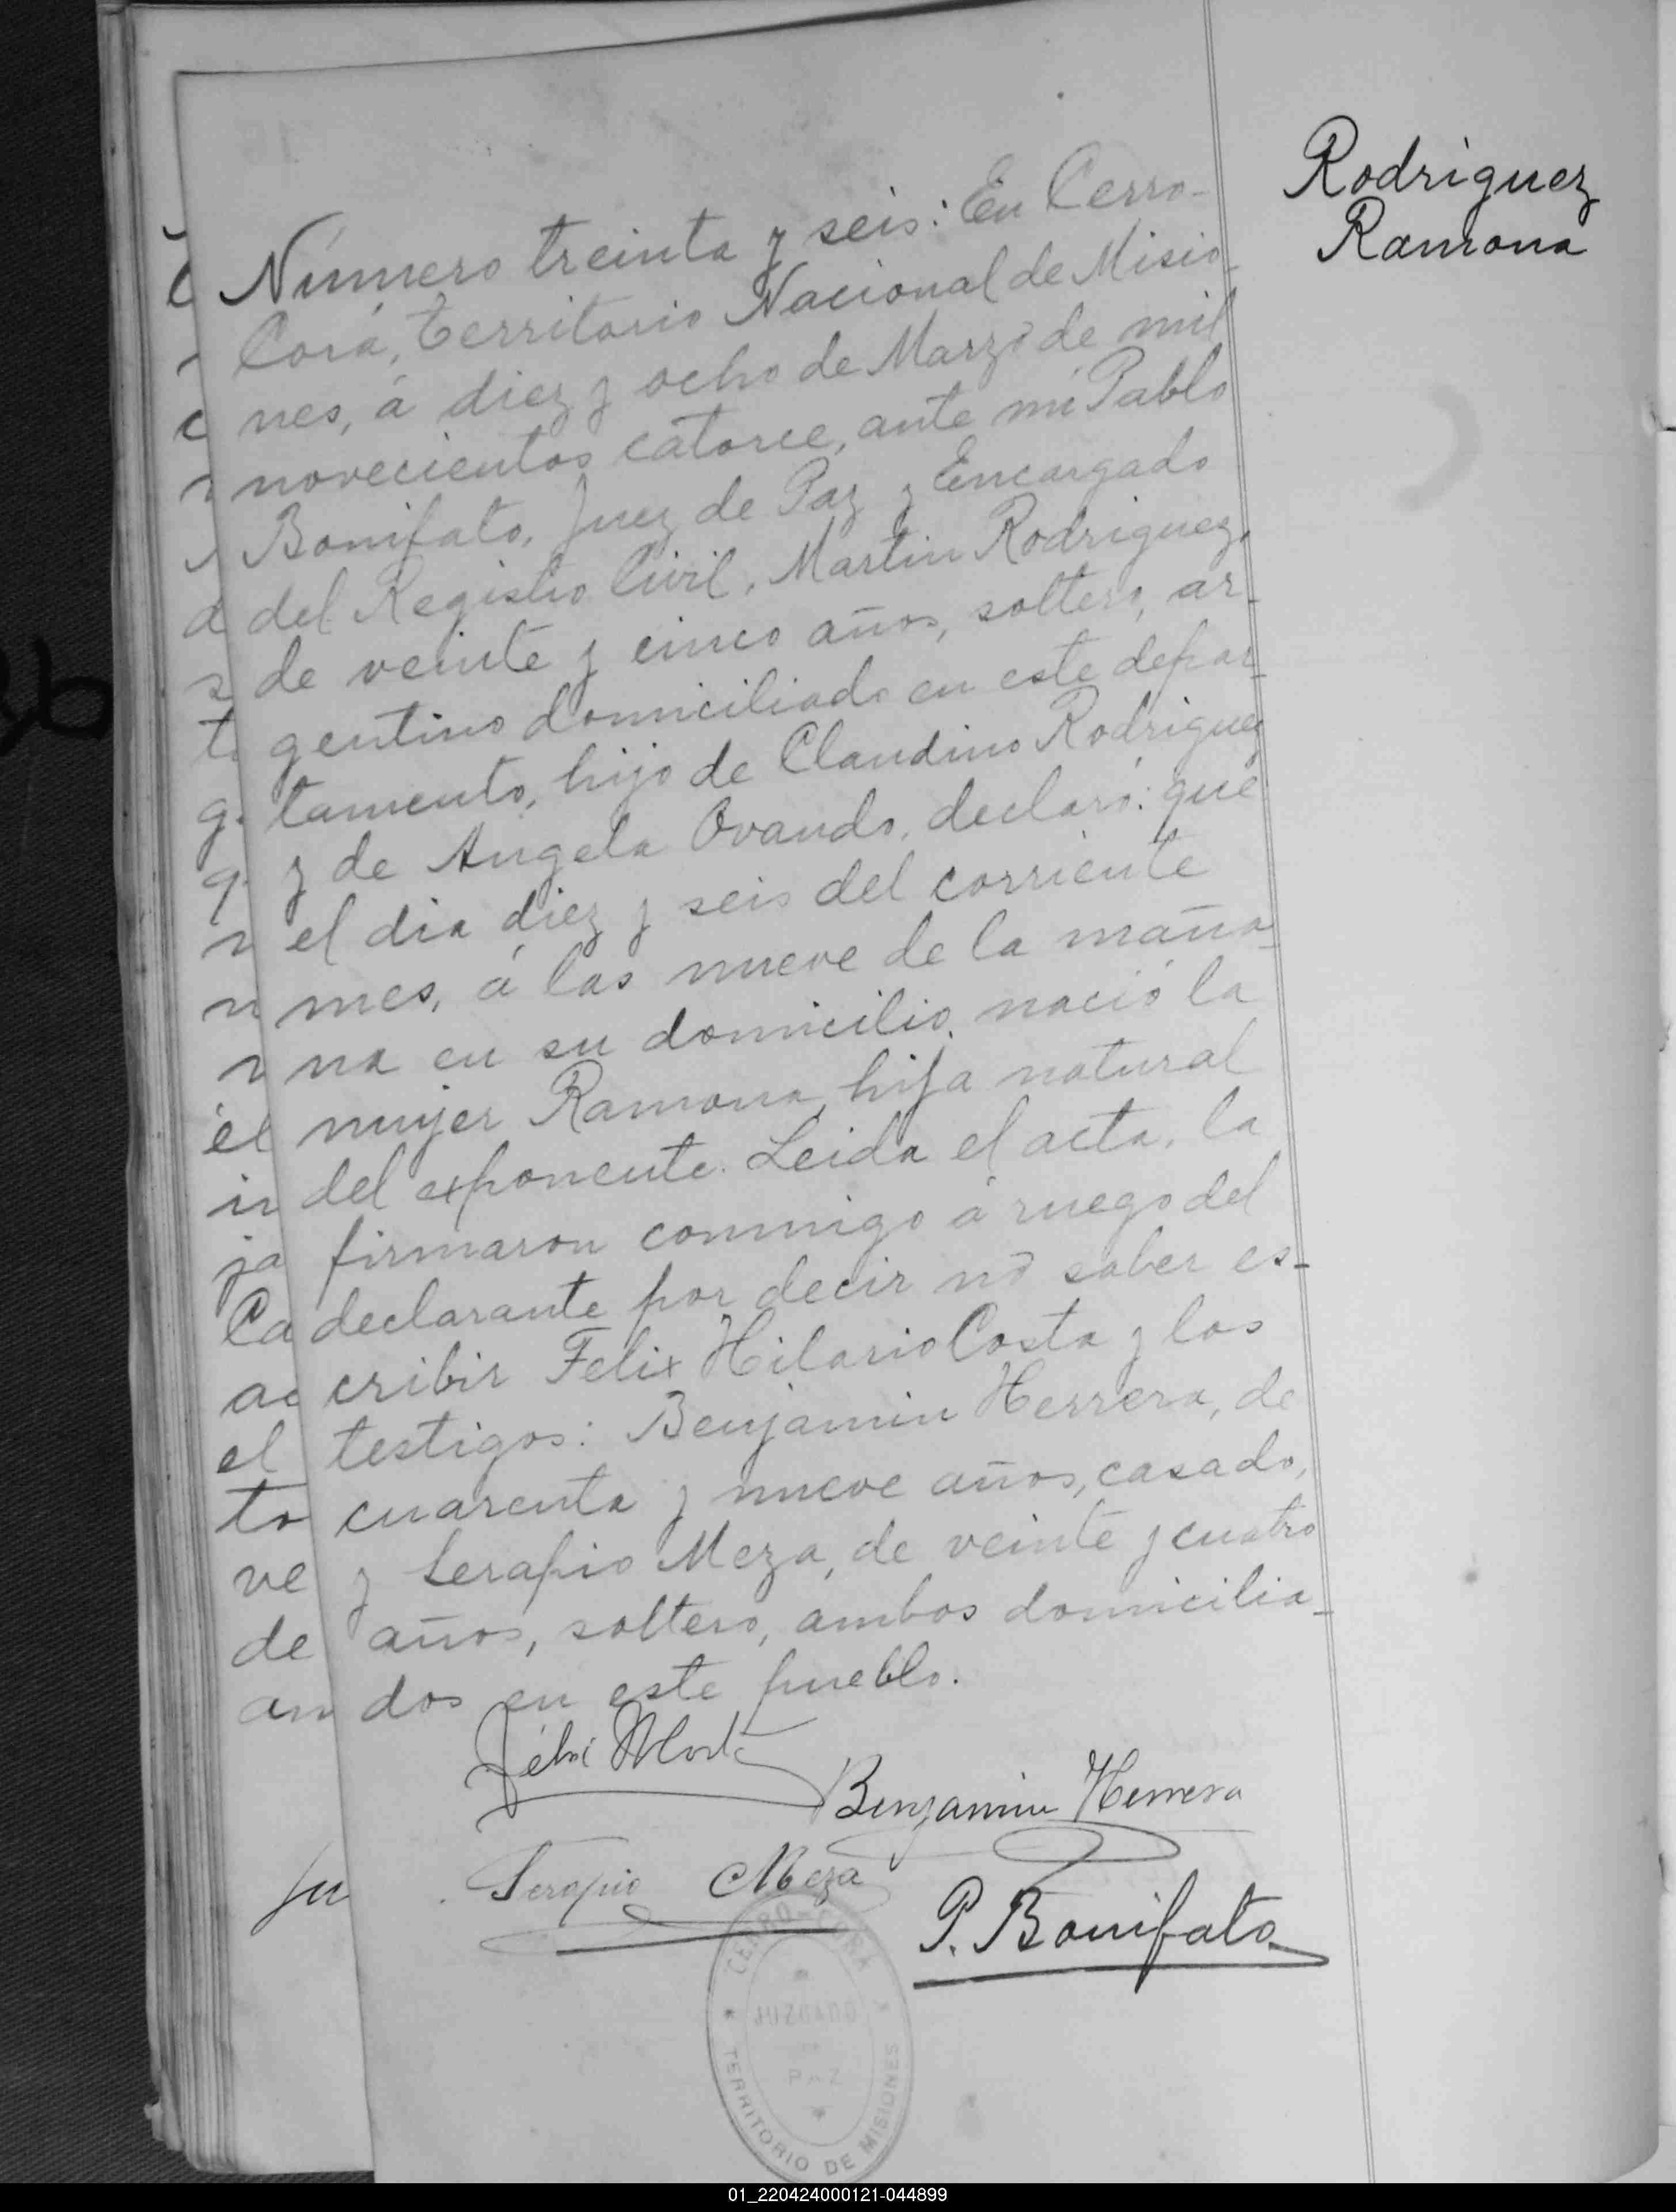 Rodriguez
Ramona
Número treinta y seis: En Cerro-
Corá, Territorio Nacional de Misio-
nes, á diez y ocho de Marzo de mil
novecientos catorce, ante mí Pablo
Bonifato, Juez de Paz y Encargado
del Registro Civil, Martin Rodriguez,
de veinte y cinco años, soltero, ar-
gentino domiciliado en este depar-
tamento, hijo de Claudino Rodriguez
y de Angela Ovando, declaró: que
el dia diez y seis del corriente
mes, á las nueve de la maña-
na en su domicilio, nació la
mujer Ramona, hija natural
del exponente. Leida el acta, la
firmaron conmigo á ruego del
declarante por decir no saber es-
cribir Felix Hilario Costa y los
testigos: Benjamin Herrera, de
cuarenta y nueve años, casado,
y Serapio Meza, de veinte y cuatro
años, soltero, ambos domicilia-
dos en este pueblo.
Benjamin Herrera
Serapio Meza
P. Bonifato
CERRO-CORÁ
JUZGADO
DE
PAZ
TERRITORIO DE MISIONES
01_220424000121-044899